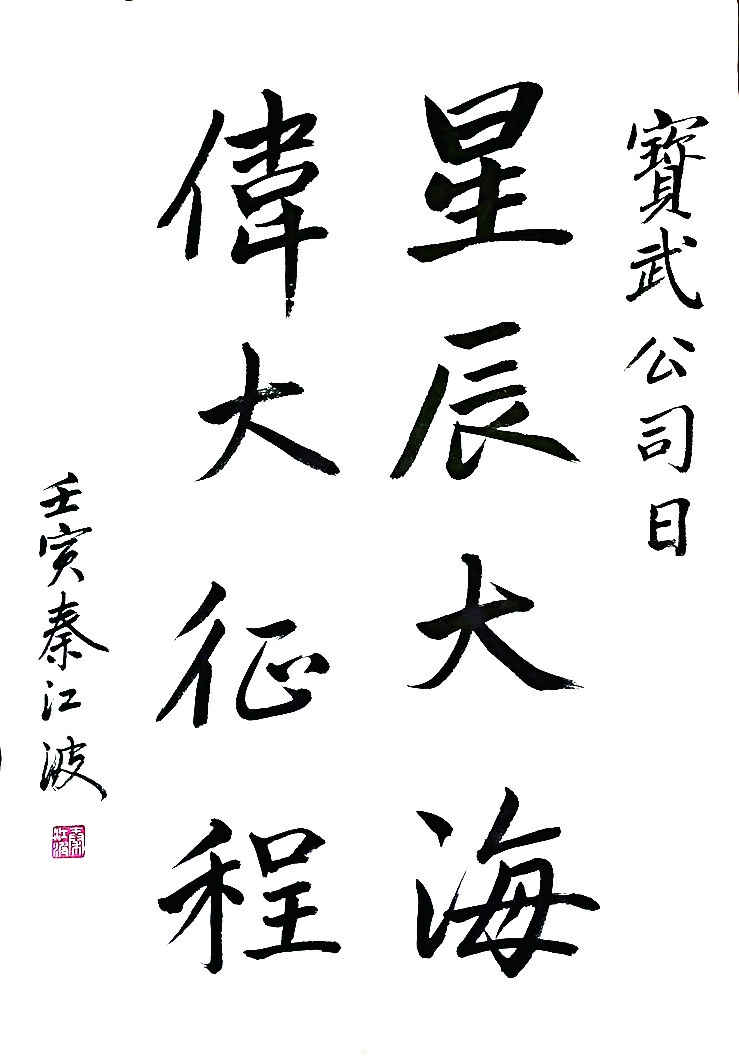 寶武公司日
星辰大海
偉大征程
壬寅秦江波
秦江波